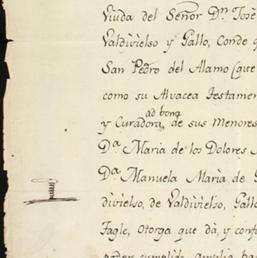 Viuda del Señor Dn. José
Valdivielso y Gallo, Conde q
San Pedro del Alamo (que
como su Alvacea Testamen
ad bona
y Curadora, de sus Menores
Da. Maria de los Dolores
Da. Manuela Maria de
divielso, de Valdivielso, Gallo
Tagle, Otorga que dá, y conf
poder cumplido amplio ba